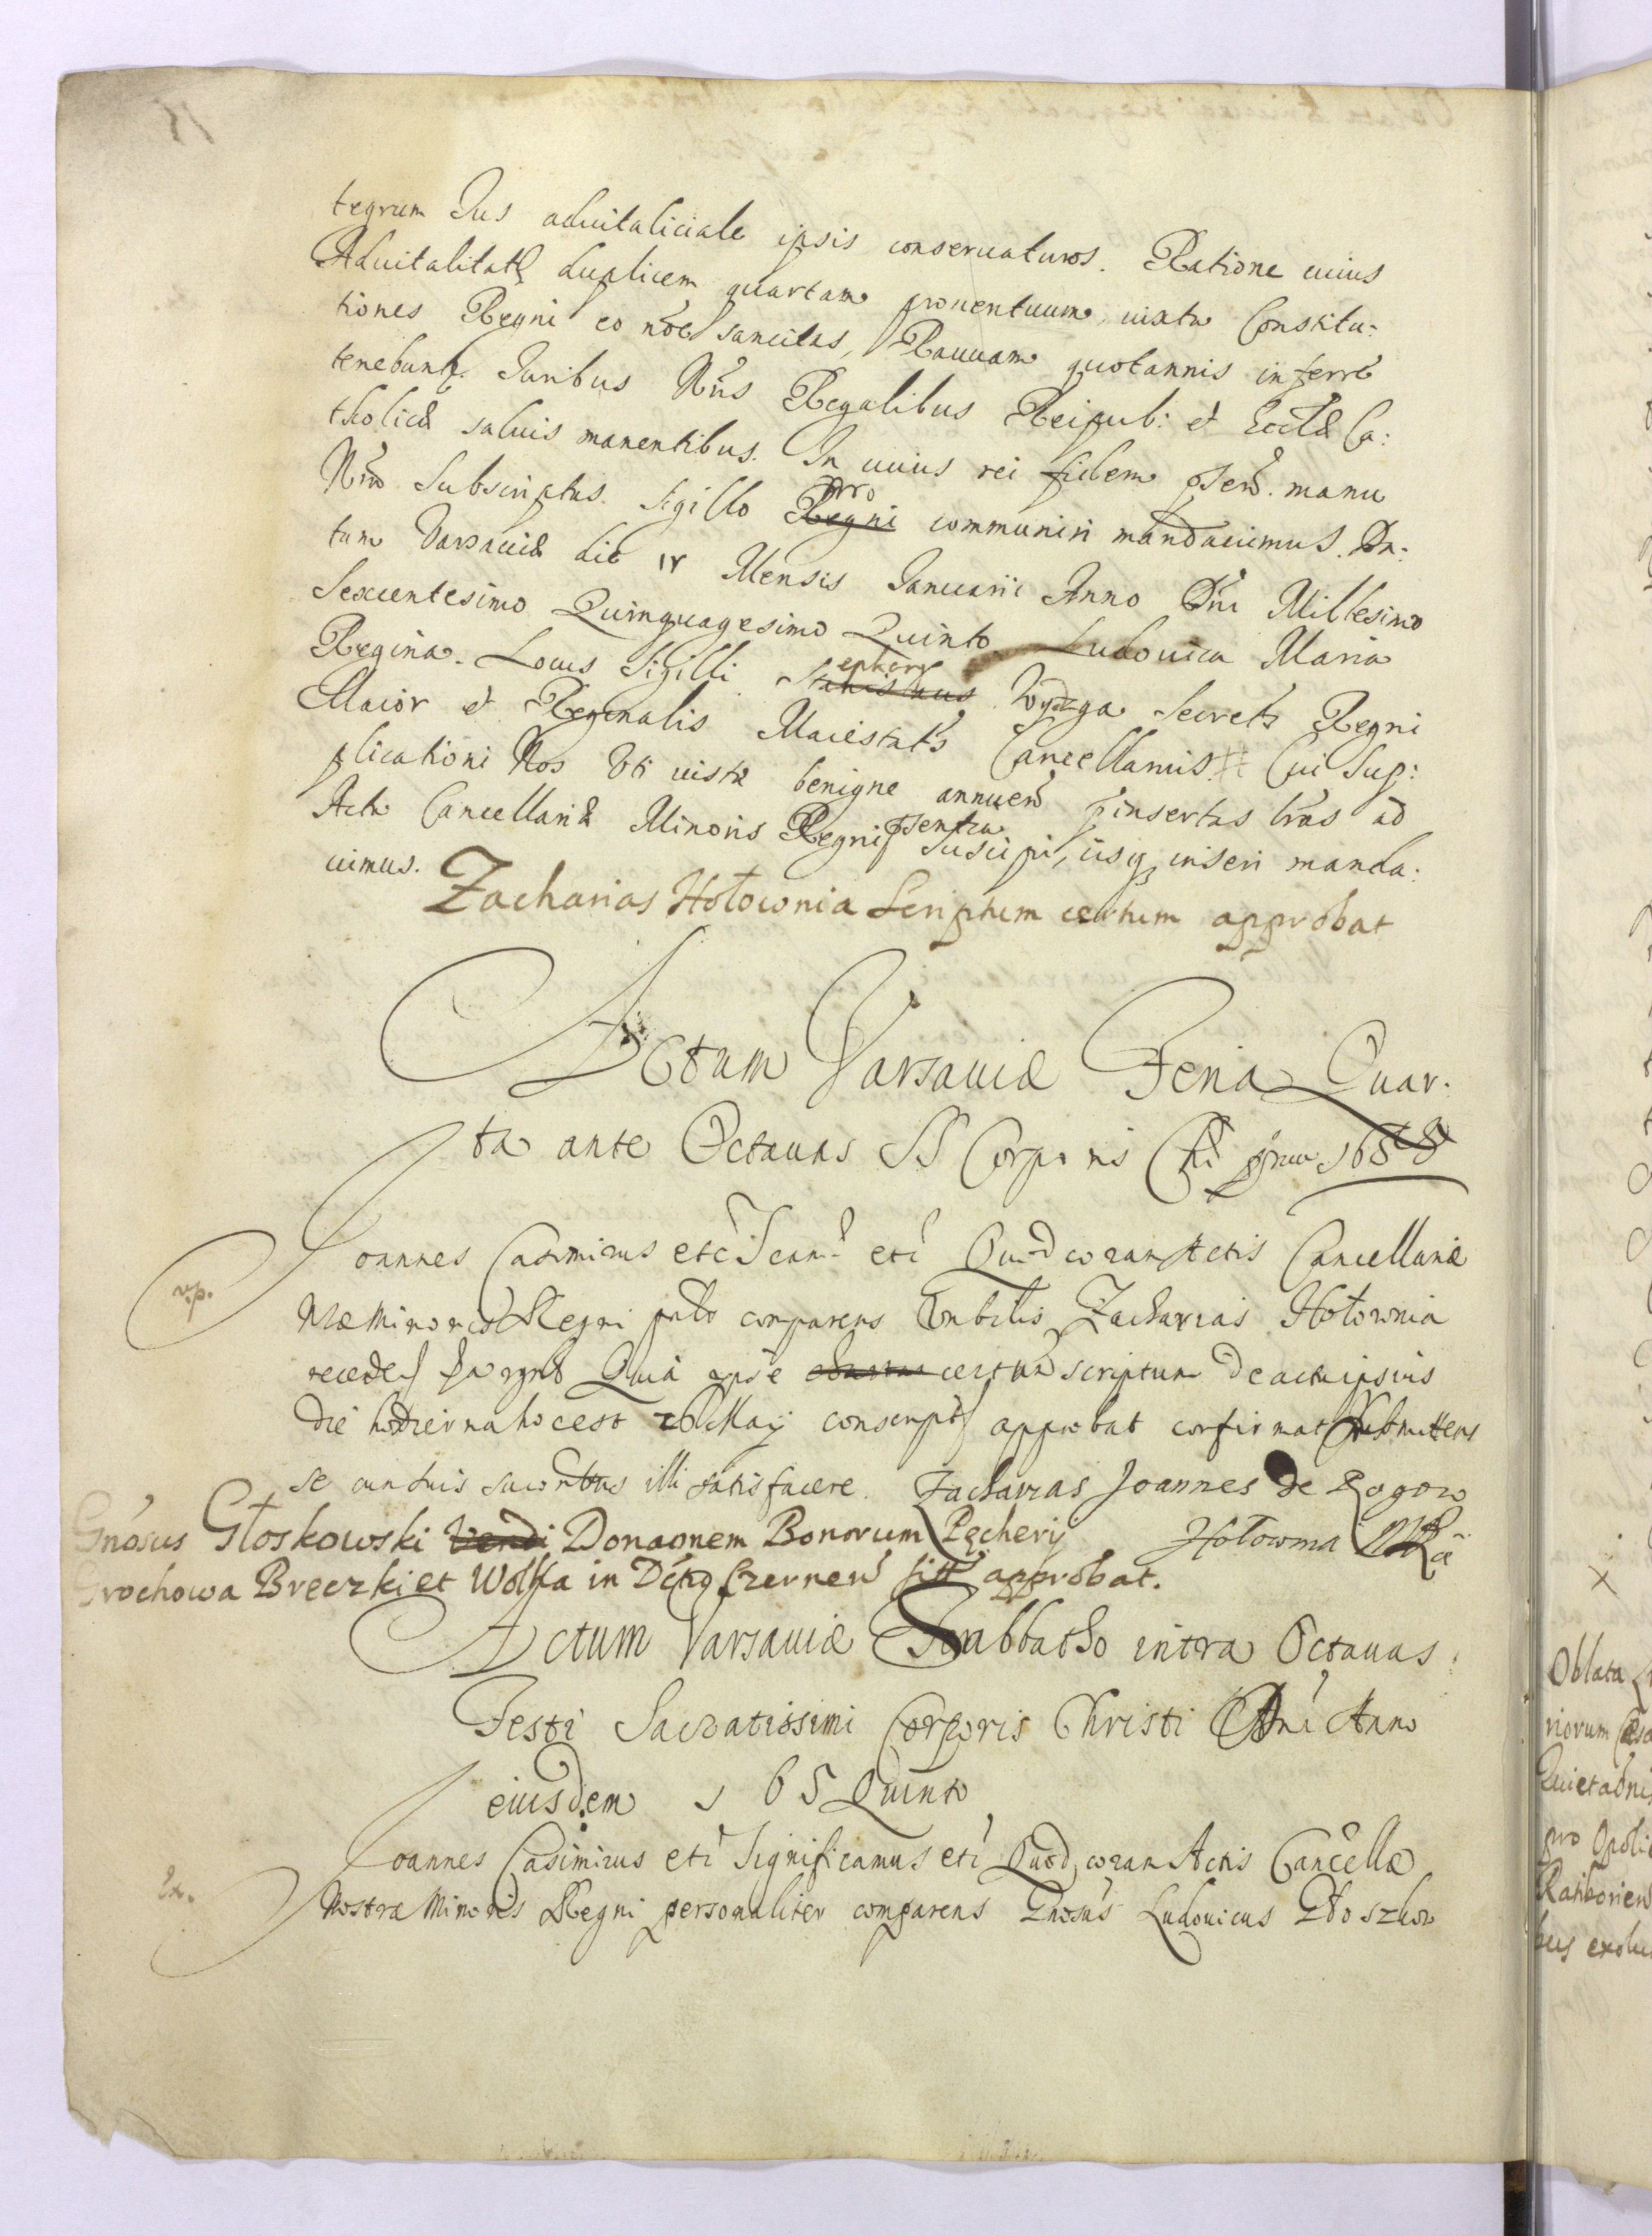 tegrum Jus aduitaliciale ipsis conseruaturos. Ratione cuius
Aduitalitatis duplicem quartam prouentuum iuxta Constitu:
tiones Regni eo noē sancitas, Rauuam quotannis inferre
tenebuntr. Juribus Nris Regalibus Reipub: et Eccłae Ca:
tholicae saluis manentibus. In cuius rei fidem pñsen. manu
Nra Subscriptas. Sigillo Regni nro communiri mandauimus. Da:
tum Varsauiae die IV Mensis Januarii Anno Dni Millesimo
Sexcentesimo Quinquagesimo Quinto. Ludouica Maria
Regina. Locus Sigilli. Stanislaus ephans Wydzga Secrets Regni
Maior et Reginalis Maiestatis Cancellarius. Cui Sup:
plicationi Nos Uti iustae benigne annuen pinsertas lras ad
Acta Cancellariae Minoris Regni psentia suscipi, iisq inseri manda:
uimus.
Zacharias Hołownia Scriptum certum approbat
Actum Varsauiae Feria Quar:
ta ante Octauas SS Corporis Chri 1655
v.p.
Joannes Casimirus etc Scam etc Quod coram Actis Cancellariae
Nrae Minoris Regni comparens Gnbilis Zacharias Hołownia
receden Quia ipse certum scriptum de actu ipsius
die hodierna hoc est 26 Maij conscript approbat confirmat submittens
se cum suis succoribus illi satisfacere. Zacharias Joannes de Rogow
Hołownia
Gnosus Głoskowski Vendi Donaonem Bonorum Pęchery
Grochowa Breczki et Wolka in Dctu Czernen sitt approbat.
Actum Varsauiae Sabbatho intra Octauas
Festi Sacratissimi Corporis Christi Dni Anno
eiusdem 165 Quinto
Ex.
Joannes Casimirus etc Significamus etc Quod coram Actis Cancellae
Nostrae Minoris Regni personaliter comparens Gnosus Ludouicus Głoszkow
Oblata
riorum
Quietaonis
pro Opolie
Ratiborien